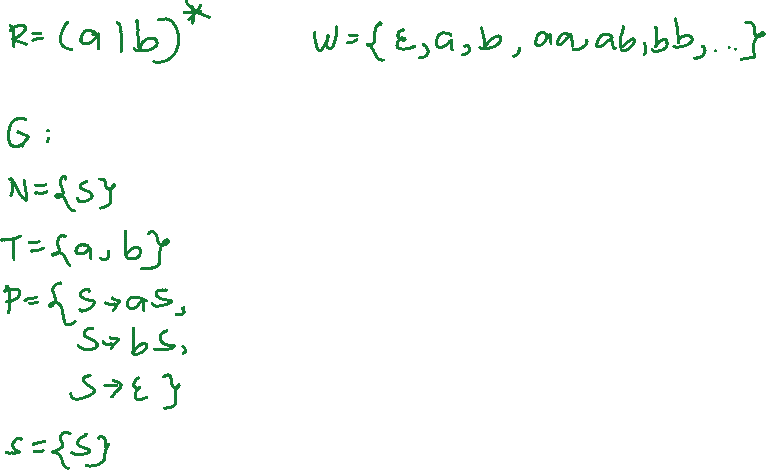 R= (a|b)*
W={ε,a,b,aa,ab,bb,...}
G:
N={S}
T={a,b}
P={S→aS,
S→bS,
S→ε}
s={S}